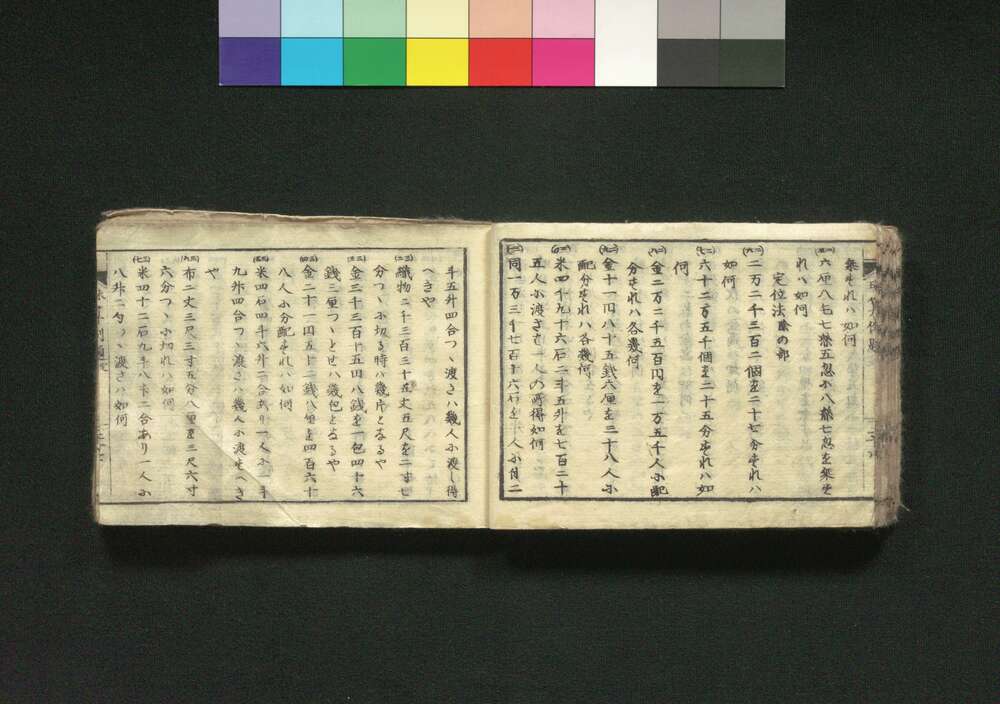 乗すれハ如何
六厘八毛七糸五忽に八糸七忽を乗す
れハ如何
定位法 除の部
二万二千三百二個を二十七分すれハ
如何
六十二万五千個を二十五分すれハ如
何
金二万二千五百円を一万五千人に配
分すれハ各幾何
金十一円八十五銭六厘を三十八人に
配分すれハ各幾何
米四千九十六石二斗五升を七百二十
五人に渡すとき一人の所得如何
同一万三千七百十六石を 人に
斗五升四合つゝ渡さハ幾人に渡し得
へきや
織物二千三百三十五丈五尺を二寸七
分つゝに切る時ハ幾片となるや
金三千三百十五円八銭を一包四十六
銭三厘つゝとせハ幾包となるや
金二十一円五十二銭八厘を四百六十
八人に分配すれハ如何
米四石四斗六升二合あり一人に 斗
九升四合つゝ渡さハ幾人に渡すへき
や
布二丈三尺三寸五分八厘を三尺六寸
六分つゝに切れハ如何
米四十二石九斗 升二合あり一人に
八升二勺つゝ渡さハ如何